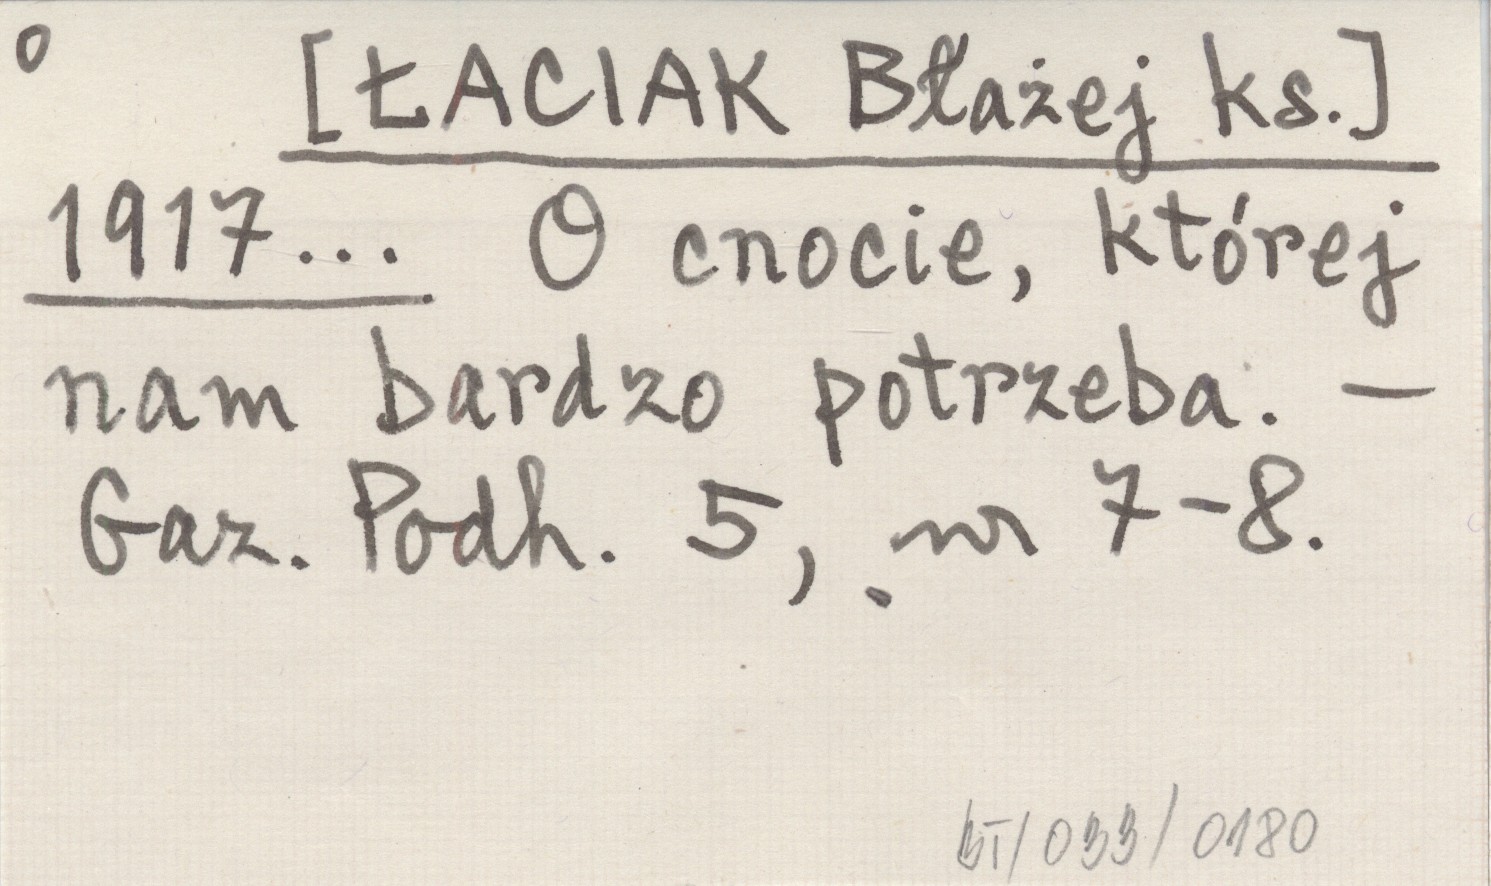 o [ŁACIAK Błażej ks.]
1917... O cnocie, której
nam bardzo potrzeba. —
Gaz. Podh. 5, nr 7-8.
BT/033/0180